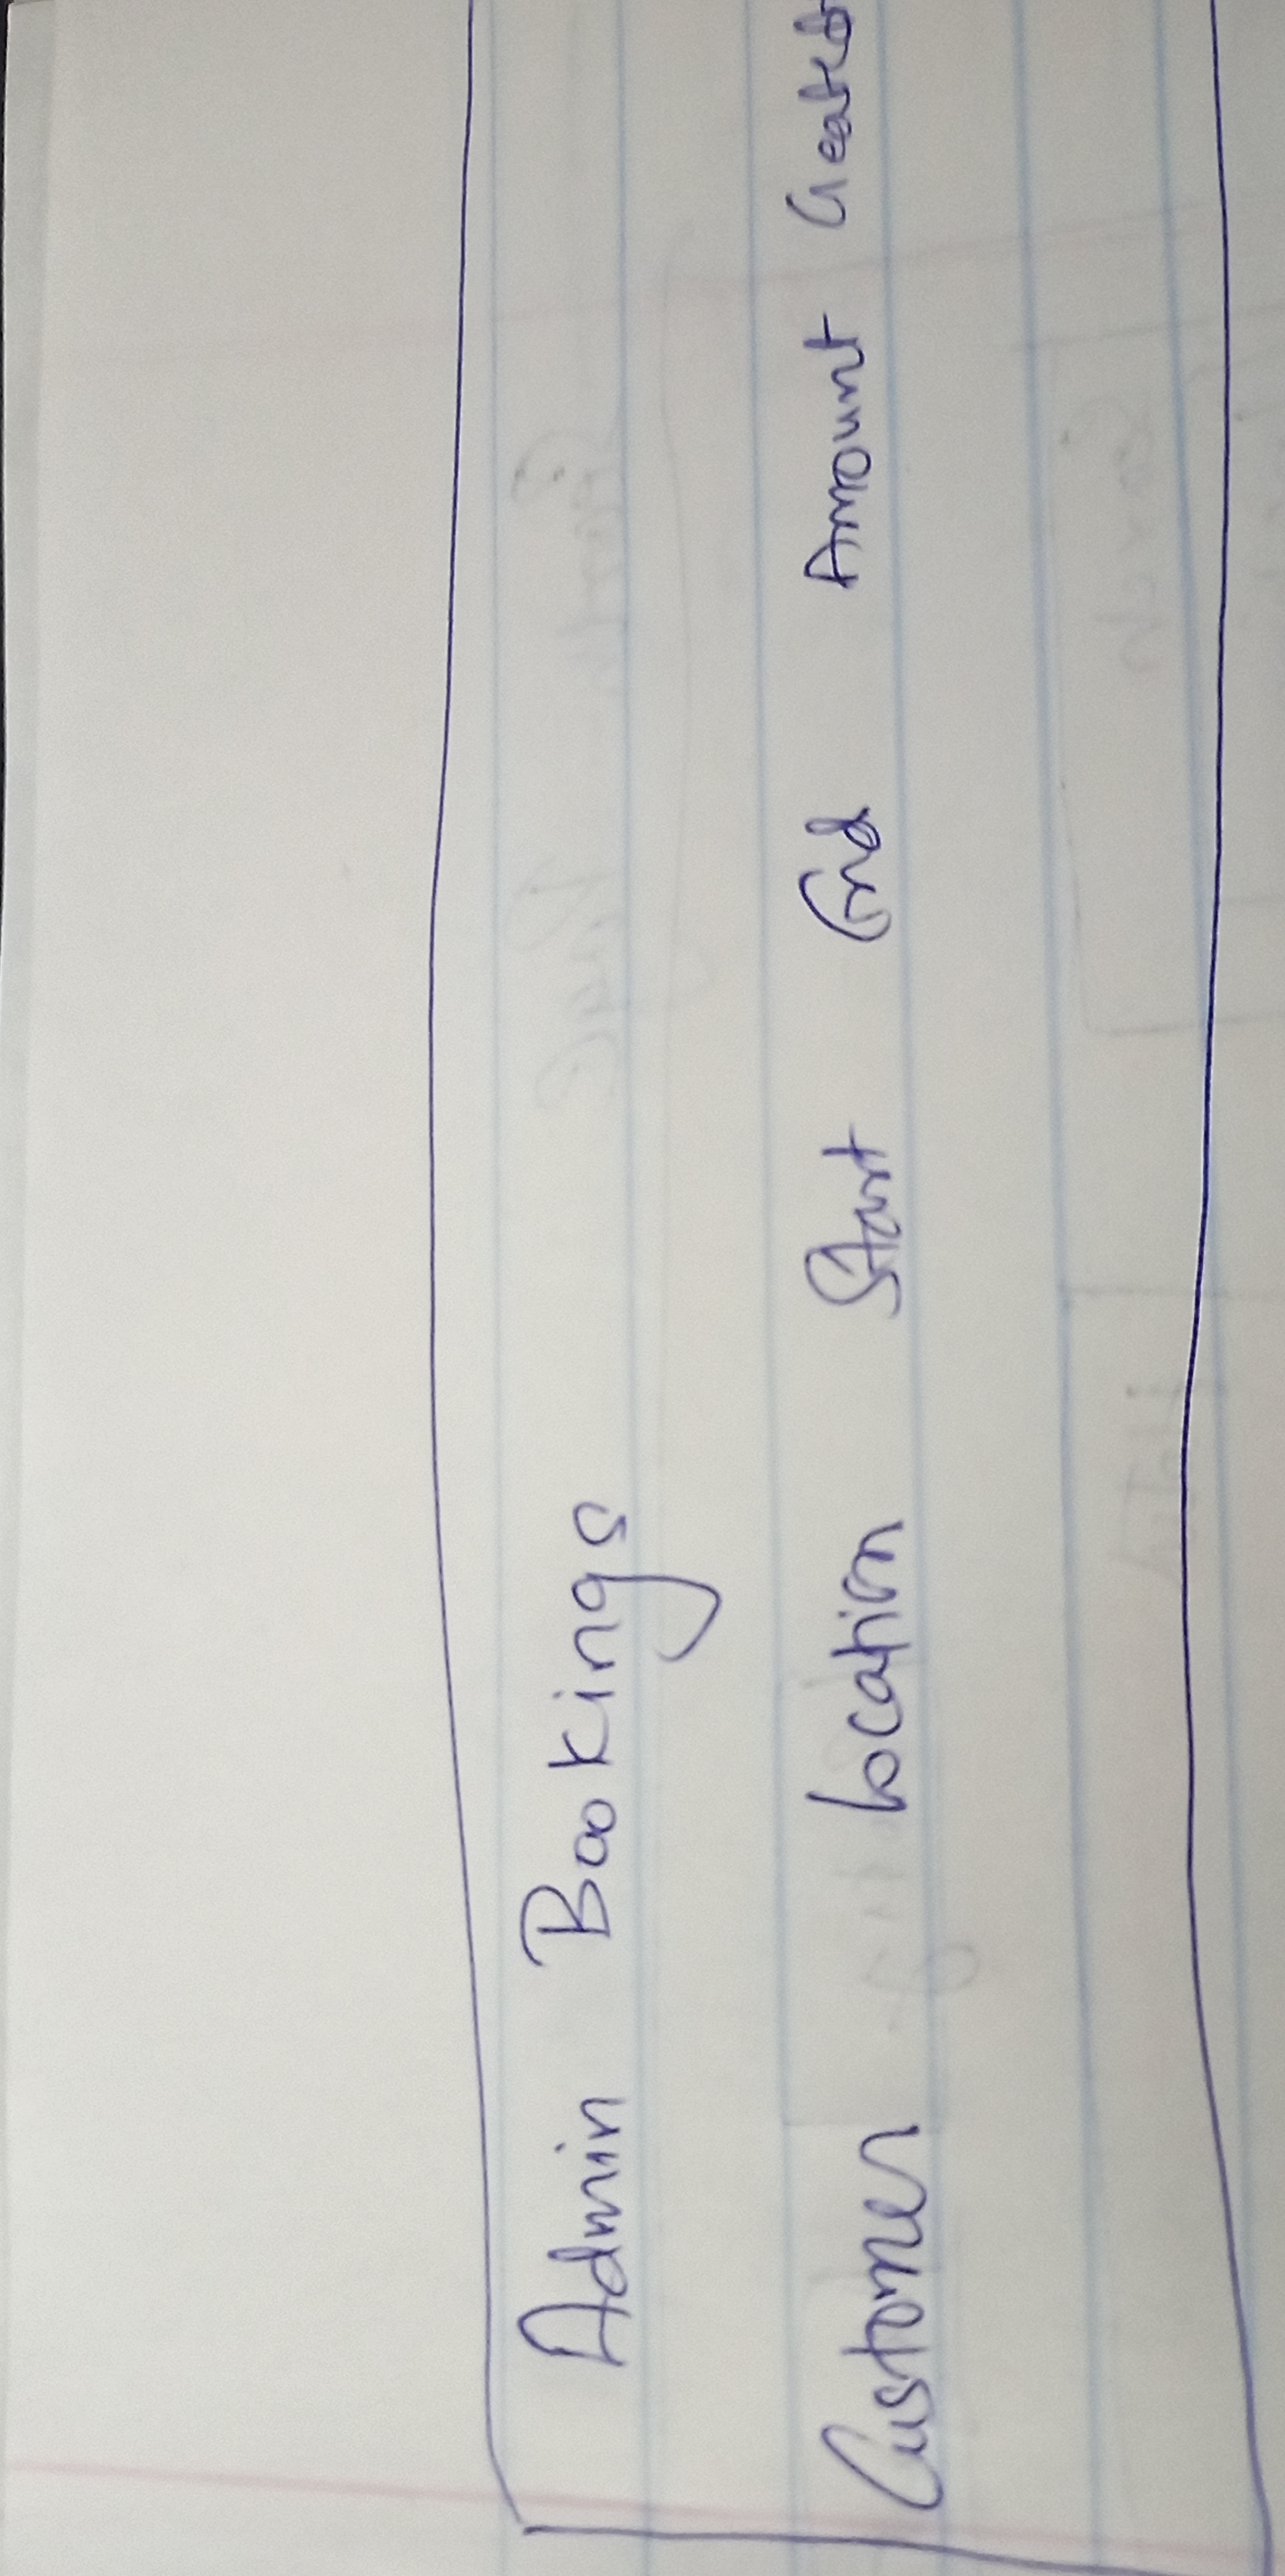 Admin Bookings
Customer Location Start End Amount Created